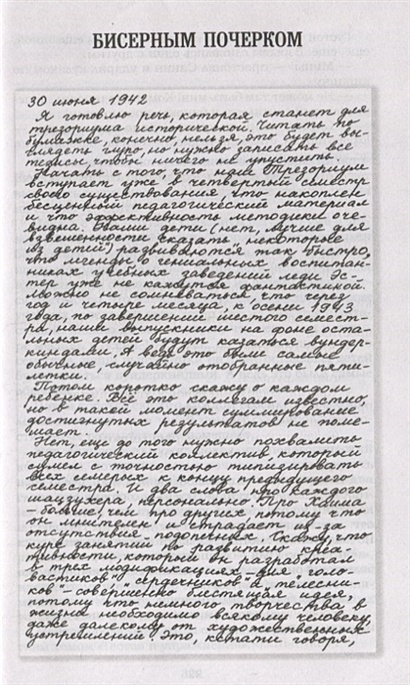 БИСЕРНЫМ ПОЧЕРКОМ
30 июня 1942
Я готовлю речь, которая станет для
трезориума исторической. Читать по
бумажке, конечно, нельзя, это будет вы-
глядеть глупо, но нужно записать все
тезисы, чтобы ничего не упустить.
Начать с того, что наш Трезориум
вступает уже в четвертый семестр
своего существования, что накоплен
бесценный педагогический материал
и что эффективность методики оче-
видна. Наши дети (нет, лучше для
взвешенности сказать „некоторые
из детей") развиваются так быстро,
что легенды о гениальных воспитан-
никах учебных заведений леди Эс-
тер уже не кажутся фантастикой.
Можно не сомневаться, что через
год и четыре месяца, к осени 1943
года, по завершении шестого семест-
ра, наши выпускники на фоне оста-
льных детей будут казаться вундер-
киндами. А ведь это были самые
обычные, случайно отобранные пяти-
летки.
Потом коротко скажу о каждом
ребенке. Всё это коллегам известно,
но в такой момент суммирование
достигнутых результатов не поме-
шает.
Нет, еще до того нужно похвалить
педагогический коллектив, который
сумел с точностью типизировать
всех семерых к концу предыдущего
семестра. И два слова про каждого
шацзухера, персонально. Про Хаима
– больше, чем про других, потому что
он мнителен и страдает из-за
отсутствия подопечных. Скажу, что
курс занятий по развитию креа-
тивности, который он разработал
в трех модификациях для „голо-
вастиков", „сердечников" и „телесни-
ков" – совершенно блестящая идея,
потому что немного творчества в
жизни необходимо всякому человеку,
даже далекому от художественных
устремлений. Это, кстати говоря,